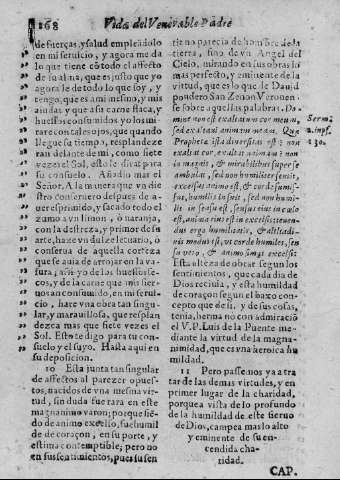 168 Vida del Venerable Padre
de fuerças, y salud empleãdolo
en mi seruicio, y agora me da
lo que tiene cõ todo el affecto
de su alma, que es justo que yo
agora le de todo lo que soy, y
tengo, que es a mi mismo, y mis
ayudas y que assi carne flaca, y
huessos consumidos yo los mi-
rare con tales ojos, que quando
llegue su tiempo, resplandeze
ran delante de mi, como siete
vezes el Sol, esto le dirâ para
su consuelo. Añadio mar el
Señor. A la manera que vn die
stro conseruero despues de a-
uer esprimido, y sacado todo el
zumo a vn limon, ò naranja,
con la destreza, y primor de su
arte, haze vn dulze lectuario, ò
conserua de aquella corteza
que se auia de arrojar en la va-
sura; assi yo de los huessos se-
cos, y de la carne que mis sier-
uos an consumido, en mi serui-
cio, harè vna obra tan singu-
lar, y marauillosa, que resplan
dezca mas que siete vezes el
Sol. Esto te digo para tu con-
suelo y el suyo. Hasta aqui en
su deposicion.
10 Esta junta tan singular
de affectos al parezer opues-
tos, nacidos de vna mesma vir-
tud, sin duda fue rara en este
magnanimo varon; porque siẽ-
do de animo excelso, fue humil
de de coraçon, en su porte, y
estima contemptible; pero no
en sus sentimientos, pues su sen
tir no parecia de hombre de la
tierra, sino de vn Angel del
Cielo, mirando en sus obras lo
mas perfecto, y eminente de la
virtud, que es lo que de Dauid
pondero San Zenon Veronen-
se sobre aquellas palabras. Do-
mine non est exaltatum cor meum,
sed exaltaui animam meam. Quæ
Propheta ista diuersitas est? non
exaltat cor, exaltat animam? non
in magnis, & mirabilibus super se
ambulat, sed non humiliter sentit,
excelsus animo est, & corde sumis-
sus, humilis in sinu, sed non humi-
lis in sensu est, sensus eius in cælo
est, anima eius est in excelsis: tenen-
dus ergo humilitatis, & altitudi-
nis modus est, vt corde humiles, sen
su vero, & animo simus excelsi:
Esta alteza de obrar segun los
sentimientos, que cada dia de
Dios reciuia, y esta humildad
de coraçon segun el baxo con-
cepto que de si, y de sus cosas,
tenia, herma nò con admiraciõ
el V. P. Luis de la Puente me-
diante la virtud de la magna-
nimidad, que es vna heroica hu
mildad.
11 Pero passemos ya a tra
tar de las demas virtudes, y en
primer lugar de la charidad,
porque a vista de lo profundo
de la humildad de este sieruo
de Dios, campea mas lo alto
y eminente de su en-
cendida cha-
ridad.
Serm.
2. in ps.
130.
CAP.